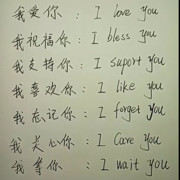 我爱你 : I love you
我祝福你 : I bless you
我支持你 : I suport you
我喜欢你 : I like you
我忘记你 : I forget you
我关心你 : I Care you
我等你 : I wait you